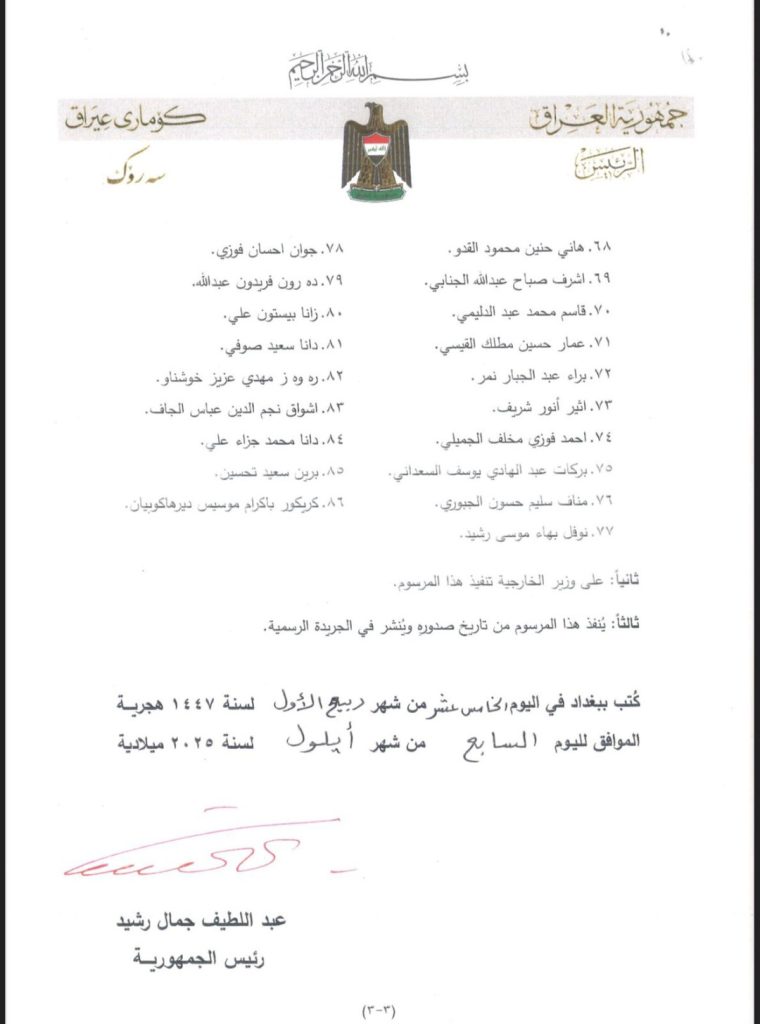 بسم الله الرحمن الرحيم
جمهورية العراق
الرئيس
كۆماری عیراق
سەرۆک
٦٨. هاني حنين محمود القدو.
٦٩. اشرف صباح عبدالله الجنابي.
٧٠. قاسم محمد عبد الدليمي.
٧١. عمار حسين مطلك القيسي.
٧٢. براء عبد الجبار نمر.
٧٣. اثير أنور شريف.
٧٤. احمد فوزي مخلف الجميلي.
٧٥. بركات عبد الهادي يوسف السعداني.
٧٦. مناف سليم حسون الجبوري.
٧٧. نوفل بهاء موسى رشيد.
٧٨. جوان احسان فوزي.
٧٩. ده رون فريدون عبدالله.
٨٠. زانا بيستون علي.
٨١. دانا سعيد صوفي.
٨٢. ره وه ز مهدي عزيز خوشناو.
٨٣. اشواق نجم الدين عباس الجاف.
٨٤. دانا محمد جزاء علي.
٨٥. برين سعيد تحسين.
٨٦. كريكور باكرام موسيس ديرهاكوبيان.
ثانياً: على وزير الخارجية تنفيذ هذا المرسوم.
ثالثاً: يُنفذ هذا المرسوم من تاريخ صدوره ويُنشر في الجريدة الرسمية.
كُتب ببغداد في اليوم الخامس عشر من شهر ربيع الأول لسنة ١٤٤٧ هجرية
الموافق لليوم السابع من شهر أيلول لسنة ٢٠٢٥ ميلادية
عبد اللطيف جمال رشيد
رئيس الجمهوريـة
(٣-٣)